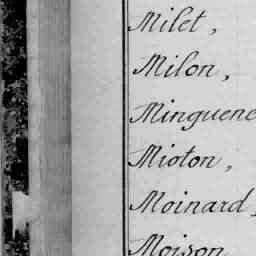 Milet,
Milon,
Minguene
Mioton,
Moinard,
Moison